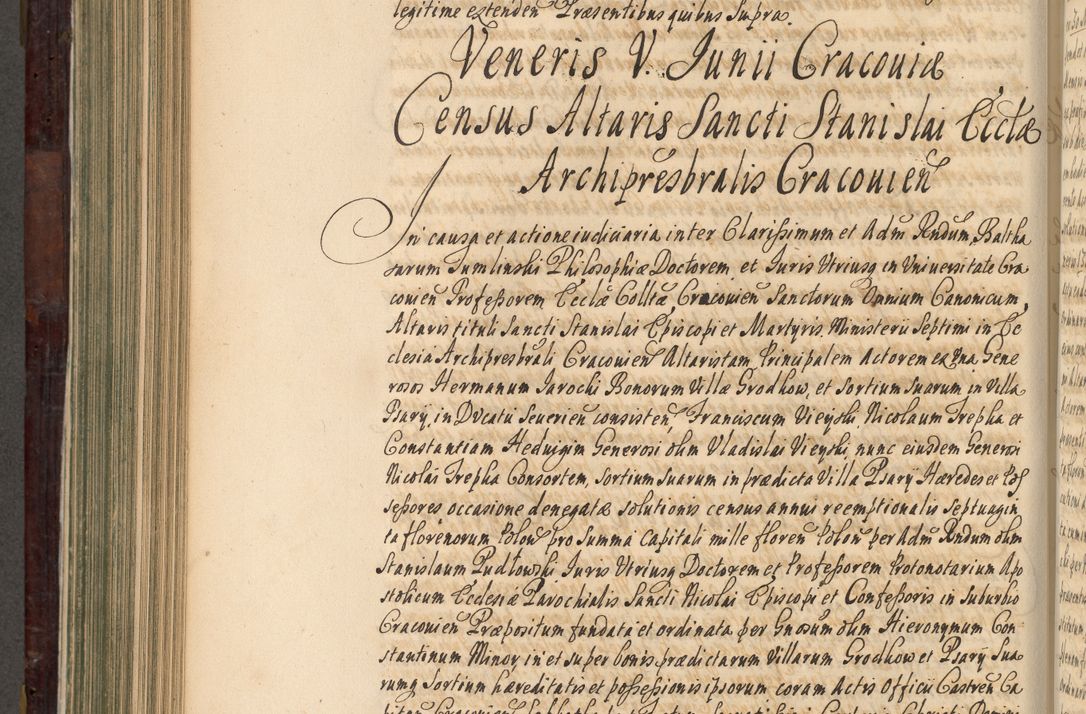 legitime extendeñ Præsentibus quibus Supra.
Veneris V. Junii Cracoviæ
Census Altaris Sancti Stanislai Eccłæ
Archipresbralis Cracovieñ
In causa et actione iudiciaria inter Clarissimum et Adm Rndum Baltha
sarum Jumlinski Philosophiæ Doctorem et Juris Utriusq in Universitate Cra
covieñ Professorem Eccłæ Colltæ Cracovieñ Sanctorum Omnium Canonicum,
Altaris tituli Sancti Stanislai Episcopi et Martyris Ministerii Septimi in Ec
clesia Archipresbrali Cracovieñ Altaristam Principalem Actorem ex Una Gene
rosos Hermanum Jarochi Bonorum Villæ Grodkow, et Sortium Suarum in Villa
Psary, in Ducatu Severieñ consisteñ, Franciscum Vieyski Nicolaum Trepka et
Constantiam Hedvigim Generosi olim Vladislai Vieyski nunc eiusdem Generosi
Nicolai Trepka Consortem, Sortium Suarum in prædicta Villa Psary Hæredes et Pos
sessores occasione denegatæ solutionis census annui reemptionalis Septuagin
ta florenorum Poloñ pro Summa Capitali mille floreñ Poloñ per Adm Rndum olim
Stanislaum Pudłowski Juris Utriusq Doctorem et Professorem Protonotarium Apo
stolicum Ecclesiæ Parochialis Sancti Nicolai Episcopi et Confessoris in Suburbio
Cracovieñ Præpositum fundata et ordinata per Gnosum olim Hieronymum Con
stantinum Minor, in et super bonis prædictarum Villarum Grodkow et Psary Sua
rumq Sortium hæreditatis et possessionis ipsorum coram Actis Officii Castreñ Ca